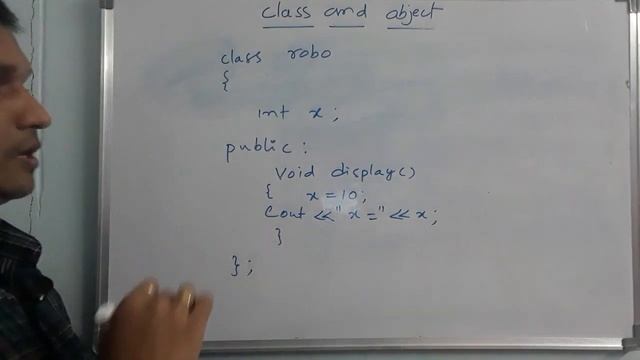 class and object
class robo
{
int x;
public:
Void display()
{ x=10;
Cout <<"x="<<x;
}
};